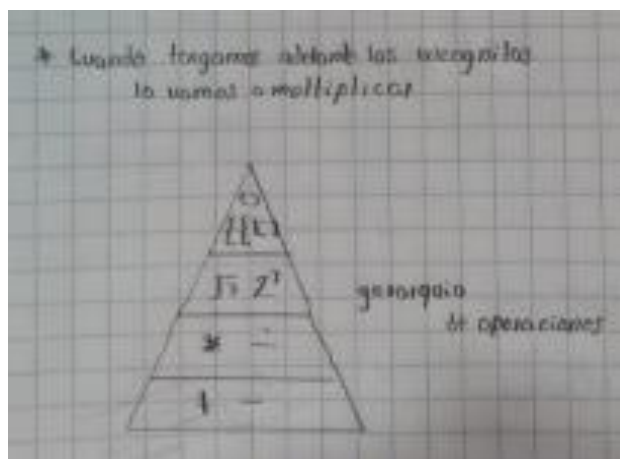 * Cuando tengamos adelante las incognitas
lo vamos a moltiplicar
()
{[]}
√ 2
* ÷
+ -
gerarquia
de operaciones